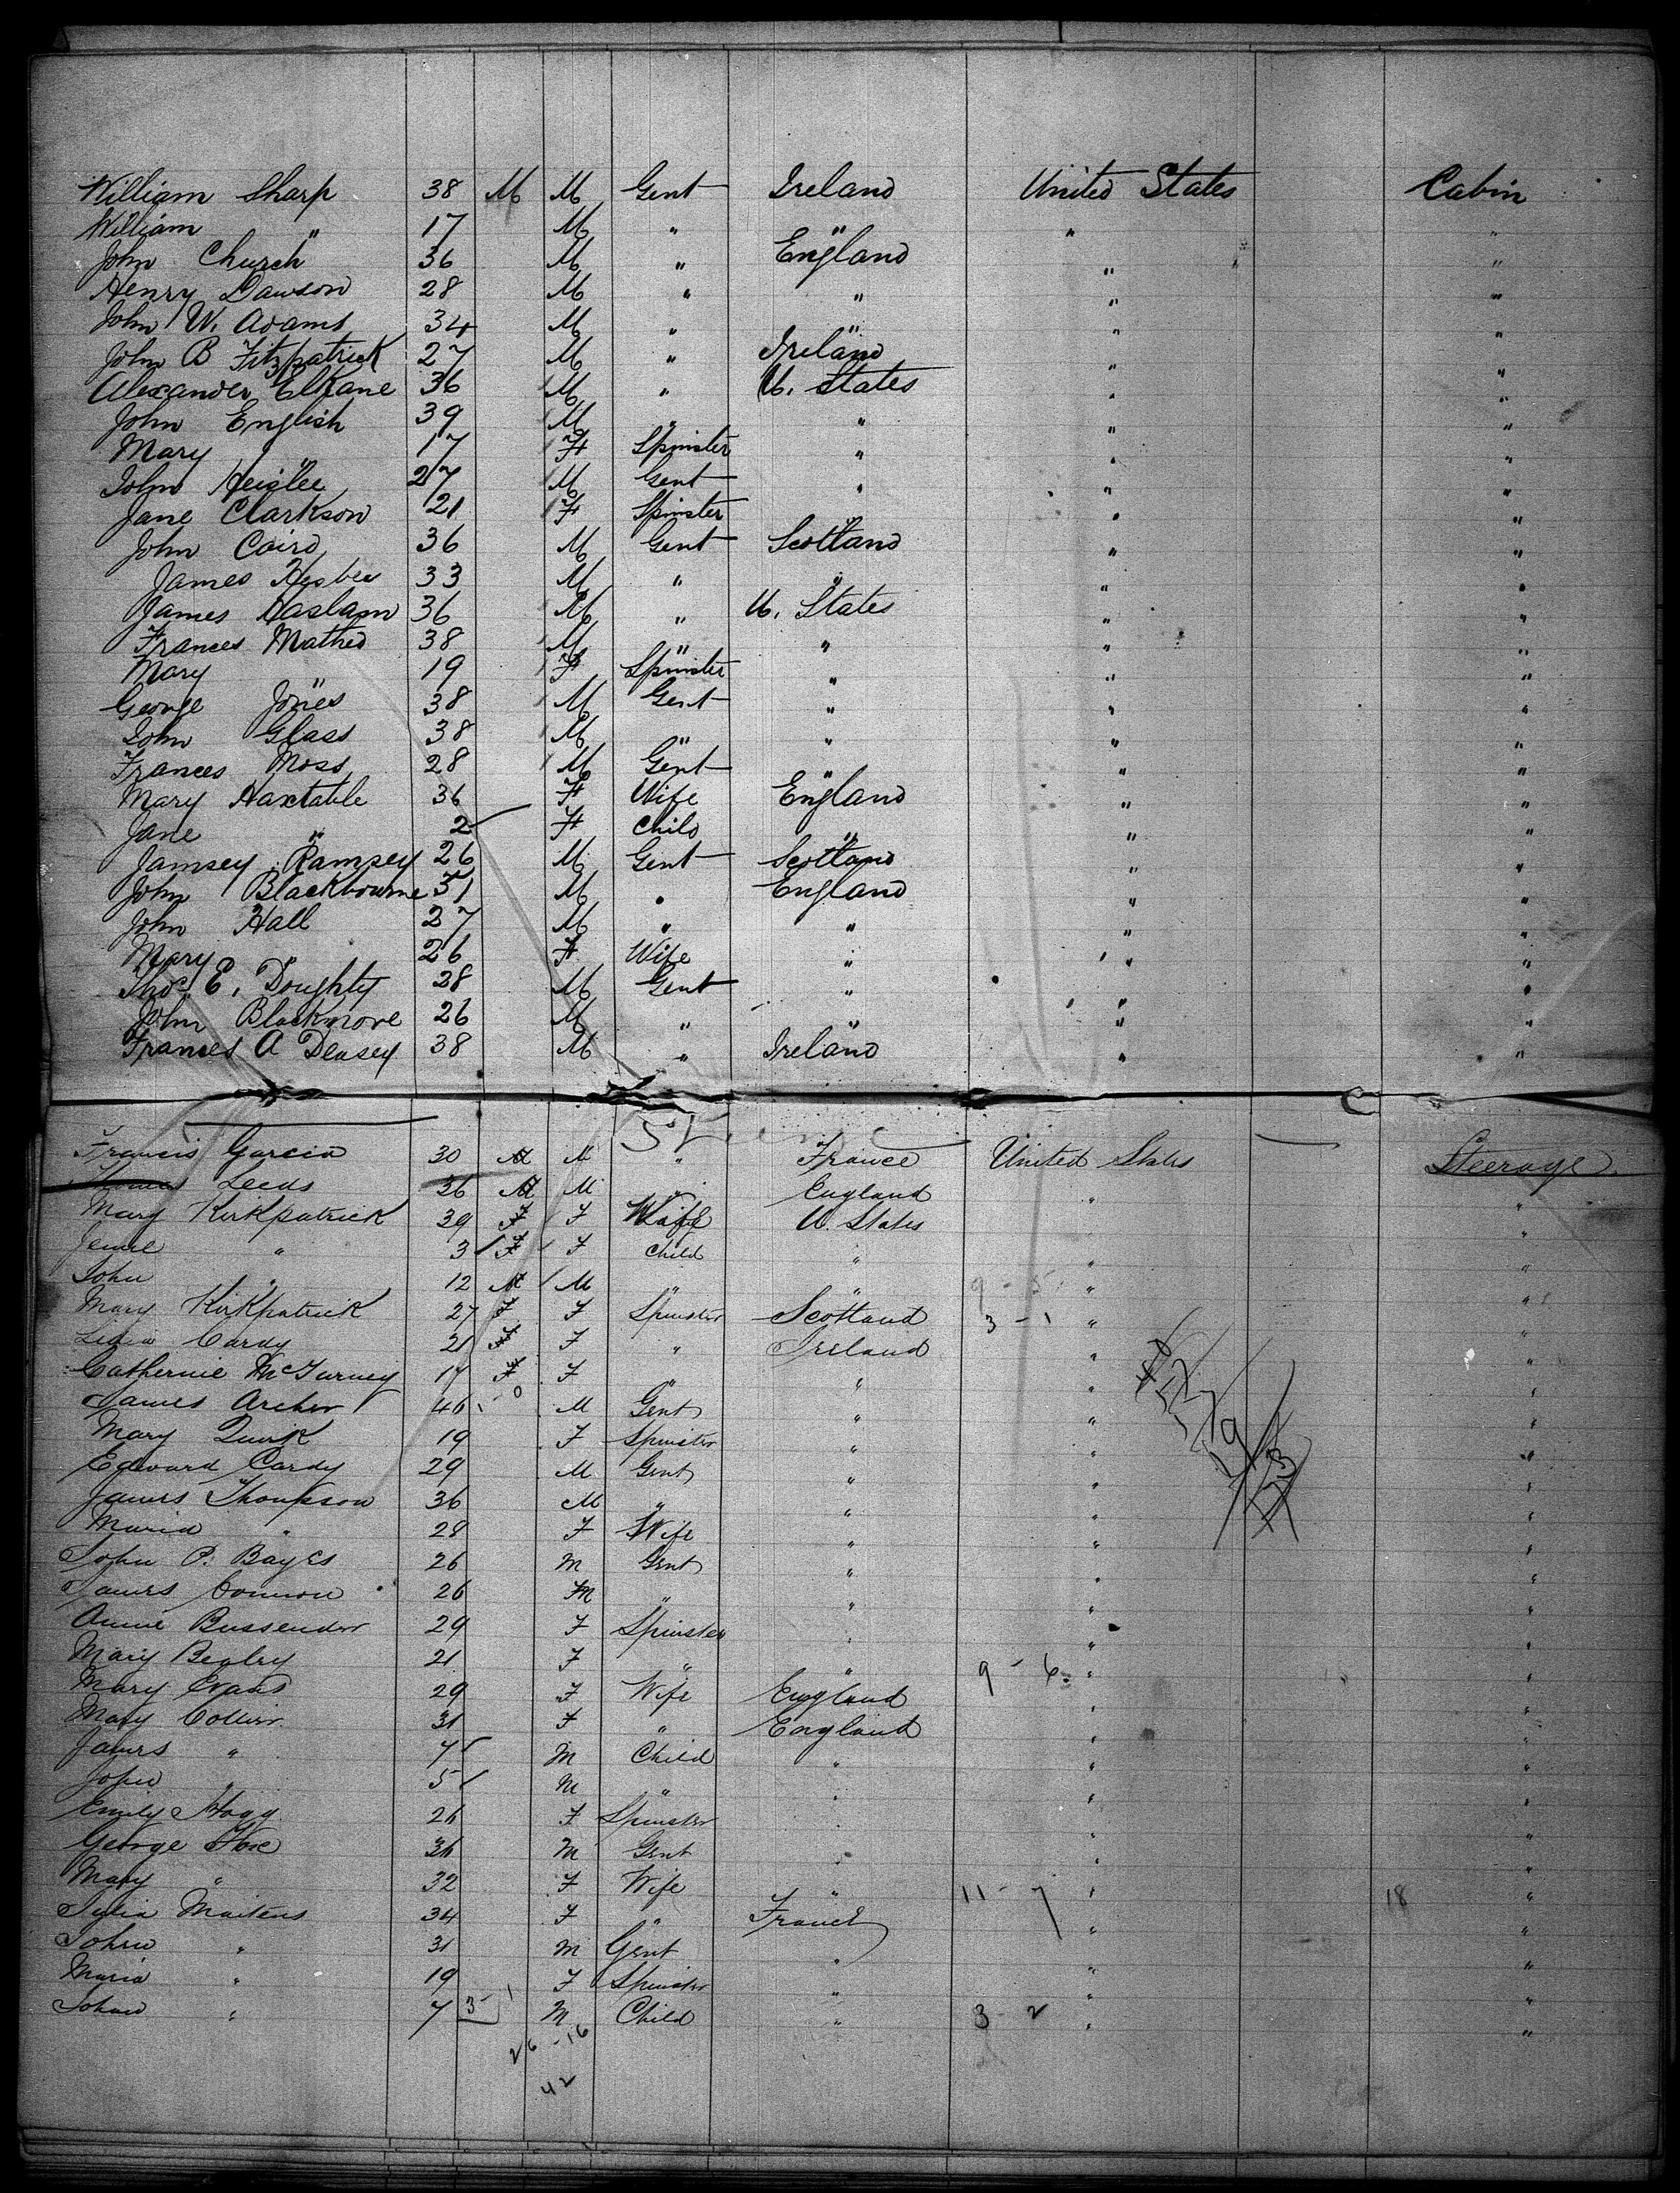 William Sharp 38 M M Gent Ireland United States Cabin
William " 17 M " " " "
John Church 36 M " England " "
Henry Dawson 28 M " " " "
John W. Adams 34 M " " " "
John B Fitzpatrick 27 M " Ireland " "
Alexander Elkane 36 M " U. States " "
John English 39 M " " " "
Mary " 17 F Spinster " " "
John 27 M Gent " " "
Jane Clarkson 21 F Spinster " " "
John Caird 36 M Gent Scotland " "
James 33 M " " " "
James Haslam 36 M " U. States " "
Frances 38 M " " " "
Mary " 19 F Spinster " " "
George Jones 38 M Gent " " "
John Glass 38 M " " " "
Frances Moss 28 M Gent " " "
Mary Haxtable 36 F Wife England " "
Jane " 2 F Child " " "
Jamsey Ramsey 26 M Gent Scotland " "
John Blackbourne 31 M " England " "
John Hall 27 M " " " "
Mary 26 F Wife " " "
Thos E. Doughty 28 M Gent " " "
John Blackmore 26 M " " " "
Frances A Deasey 38 M " Ireland " "
Francis Garcia 30 M M " France United States Steerage
Leeds 36 M M " England " "
Mary Kirkpatrick 39 F F Wife U. States " "
Jennie " 3 F F Child " " "
John " 12 M M " " 9 - 5 " "
Mary Kirkpatrick 27 F F Spinster Scotland 3 - 1 " "
Lidia Cardy 21 F F " Ireland " "
Catherine 17 F F " " " "
James Archer 46 M Gent " " "
Mary Quirk 19 F Spinster " " "
Edward Cardy 29 M Gent " " "
James Thompson 36 M " " " "
Maria " 28 F Wife " " "
John P. Bayes 26 M Gent " " "
James Connon 26 M " " " "
Annie 29 F Spinster " " "
Mary Begley 21 F " " 9 - 6 " "
Mary Evans 29 F Wife England " "
Mary Collier 31 F " England " "
James " 7 M Child " " "
John " 5 M " " " "
Emily Hogg 26 F Spinster " " "
George Fox 36 M Gent " " "
Mary " 32 F Wife " 11 - 7 " 18 "
Julia Maitens 34 F " France " "
John " 31 M Gent " " "
Maria " 19 F Spinster " " "
John " 7 3 - 1 M Child " 3 - 2 " "
26 - 16
42